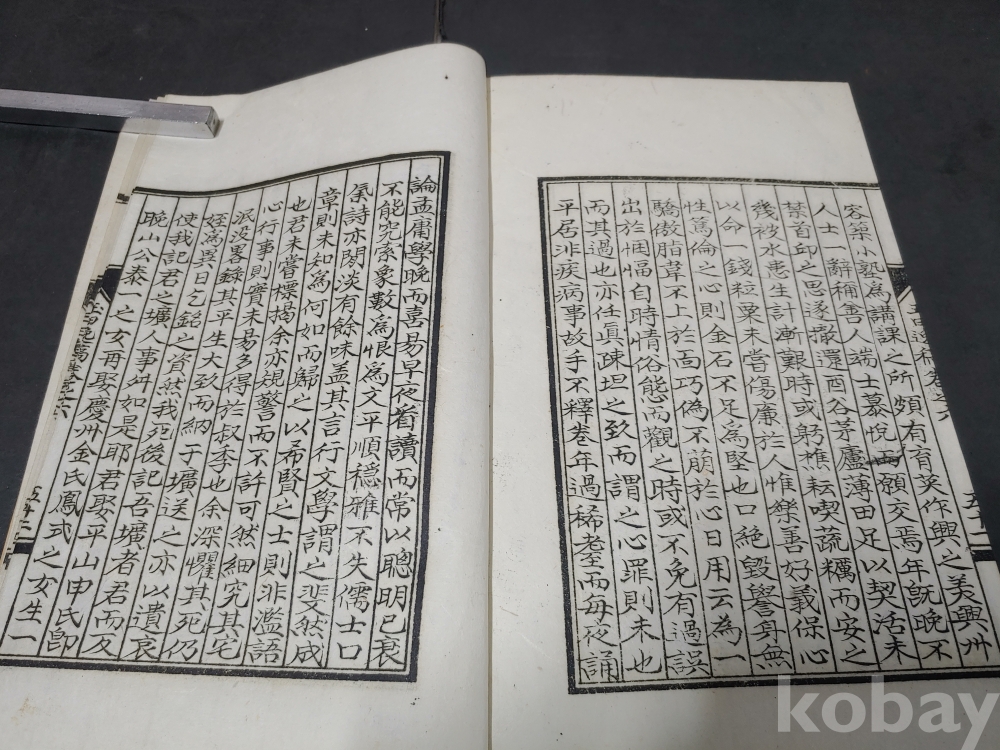 容築小塾為講課之所頗有育英作興之美興州
人士一辭稱善人端士慕悅而願交焉年旣晚不
禁首邱之思遂撤還酉谷茅廬薄田足以契活未
幾被水患生計漸艱時或躬樵耘喫疏糲而安之
以命一錢粒粟未嘗傷廉於人惟樂善好義保心
性篤倫之心則金石不足為堅也口絶毀譽身無
驕傲脂韋不上於面巧偽不萠於心日用云為一
出於悃愊自時情俗態而觀之時或不免有過誤
而其過也亦任眞疎坦之致而謂之心罪則未也
平居非疾病事故手不釋卷年過稀耋而每夜誦
論孟庸學晚而喜易早夜着讀而常以聰明已衰
不能究索象數為恨為文平順穩雅不失儒士口
氣詩亦閑淡有餘味盖其言行文學謂之斐然成
章則未知為何如而歸之以希賢之士則非濫語
也君未嘗標揭余亦規警而不許可然細究其宅
心行事則實未易多得於叔季也余深懼其死仍
泯沒畧錄其平生大致而納于壙送之亦以遺哀
姪為異日乞銘之資然我死後記吾壙者君而反
使我記君之壙人事奸如是耶君娶平山申氏卽
晩山公泰一之女再娶慶州金氏鳳式之女生一
kobay